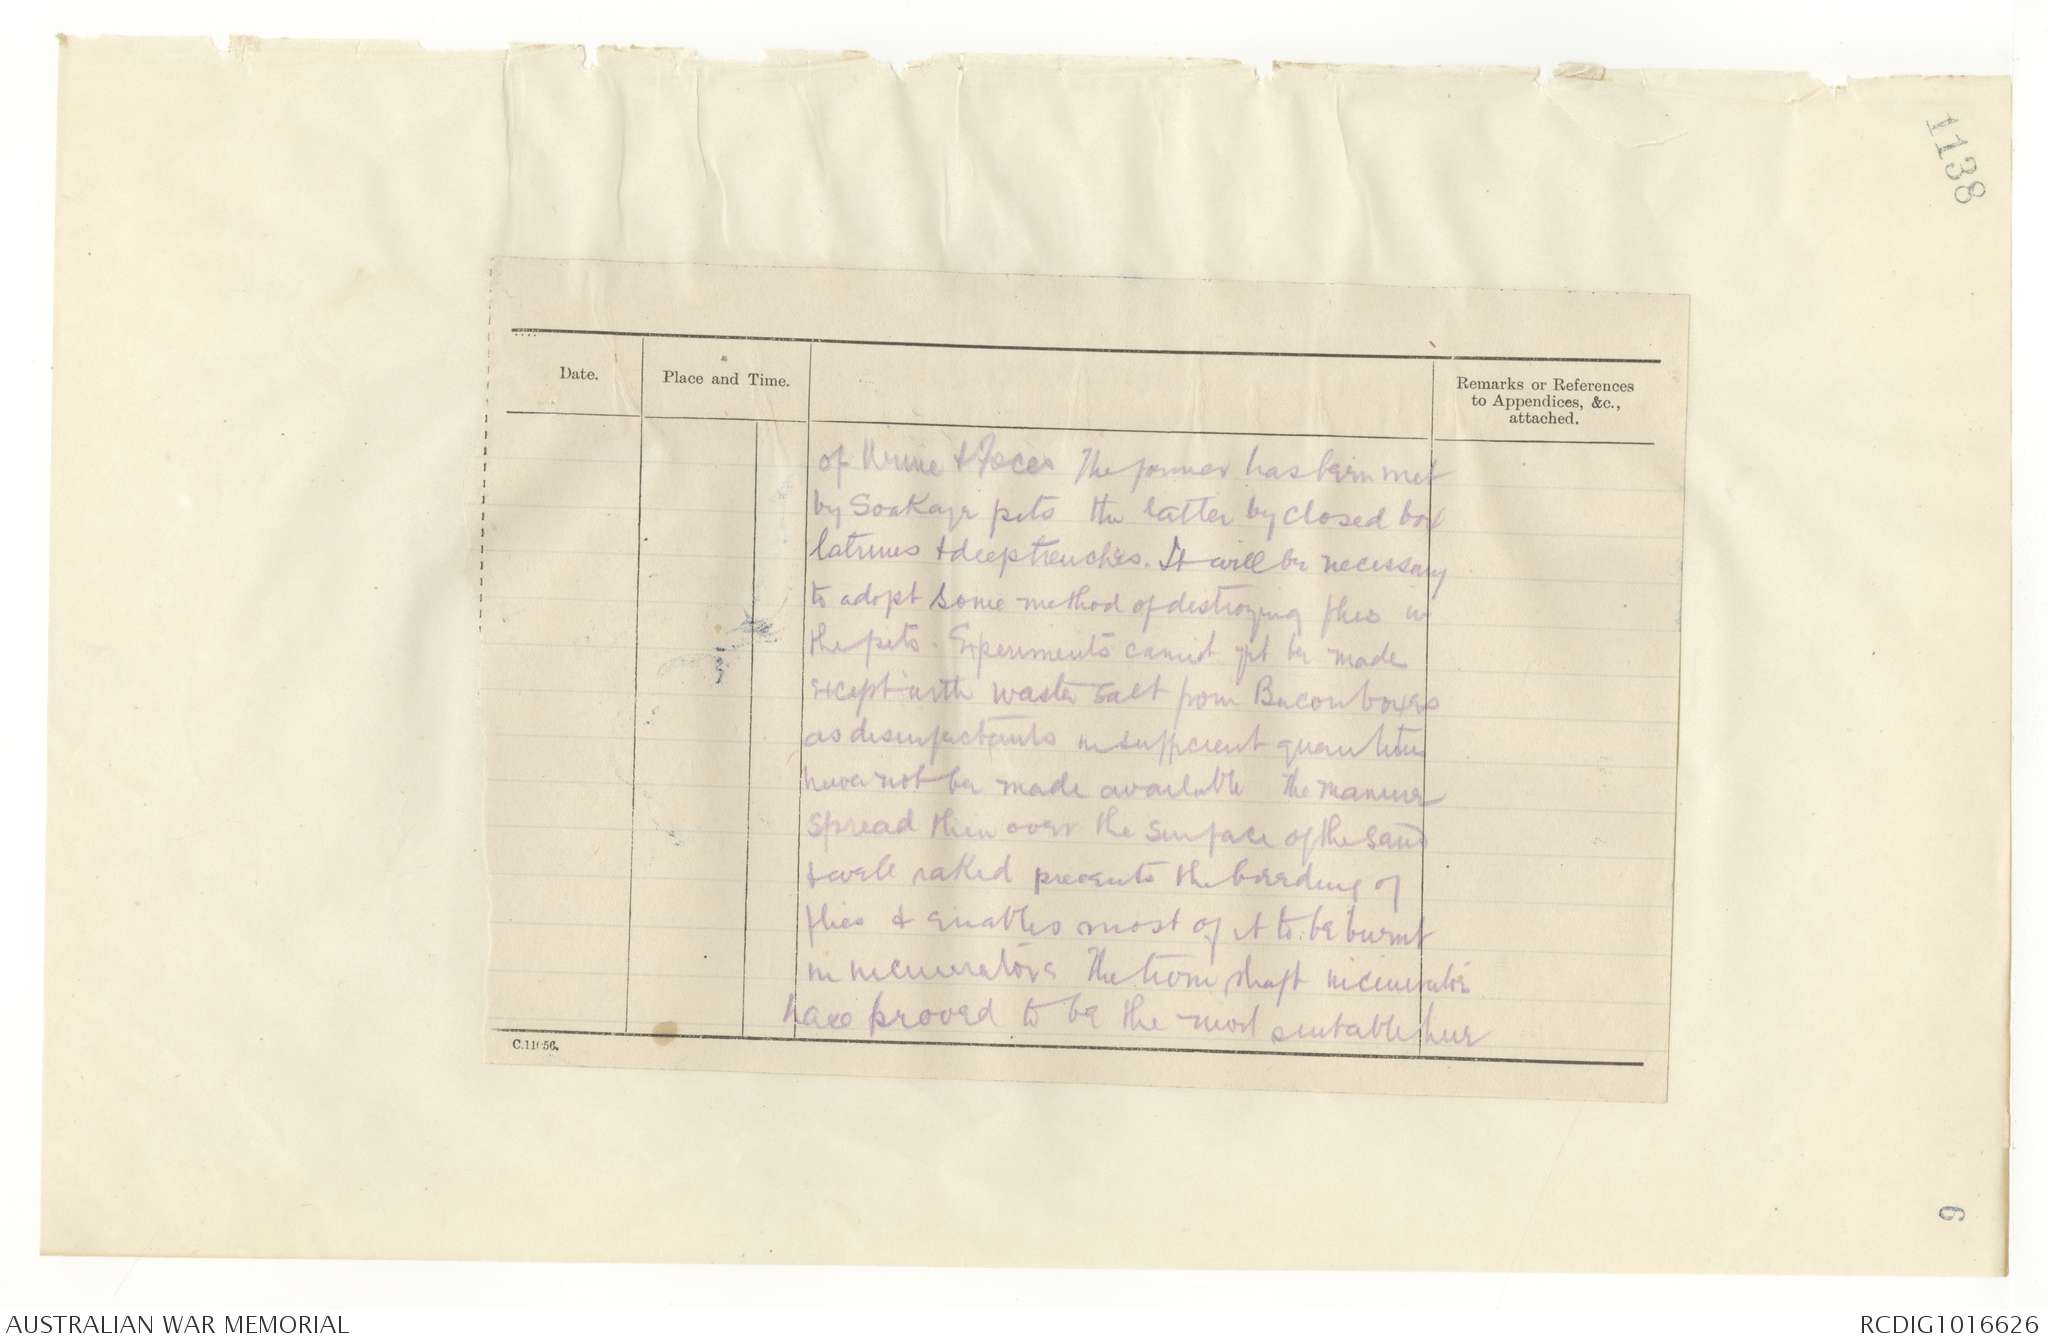 1138
Date.
Place and Time.
Remarks or References
to Appendices, &c.,
attached.
of Urine & Foeces The former has been met
by Soakage pits the latter by closed box
latrines & deep trenches. It will be necessary
to adopt some method of destroying flies in
the pits. Experiments cannot yet be made
except with waste salt from Bacon boxes
as disinfectants in sufficient quantities
have not be made available The manure
spread thin over the surface of the sand
& well raked prevents the breeding of
flies & enables most of it to be burnt
in incinerators The shaft incinerator
have proved to be the most suitable here
C.11056.
6
AUSTRALIAN WAR MEMORIAL
RCDIG1016626